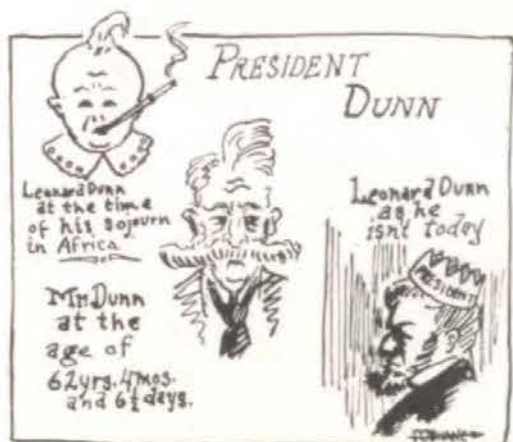 PRESIDENT
DUNN
Leonard Dunn
at the time
of his sojourn
in Africa
Mr. Dunn
at the
age of
62 yrs. 4 mos.
and 6½ days.
Leonard Dunn
as he
isn't today
PRESIDENT